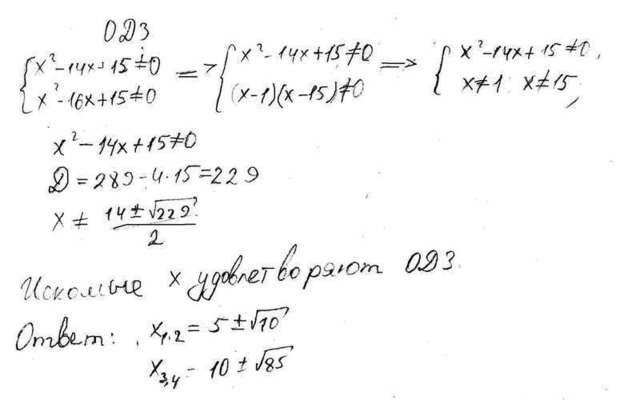 ОДЗ
{x²-14x+15≠0 => {x²-14x+15≠0 => {x²-14x+15≠0,
{x²-16x+15≠0 {(x-1)(x-15)≠0 {x≠1 x≠15,
x²-14x+15≠0
D=289-4·15=229
x ≠ (14±√229)/2
Искомые x удовлетворяют ОДЗ.
Ответ: x₁,₂ = 5±√10
x₃,₄ - 10±√85